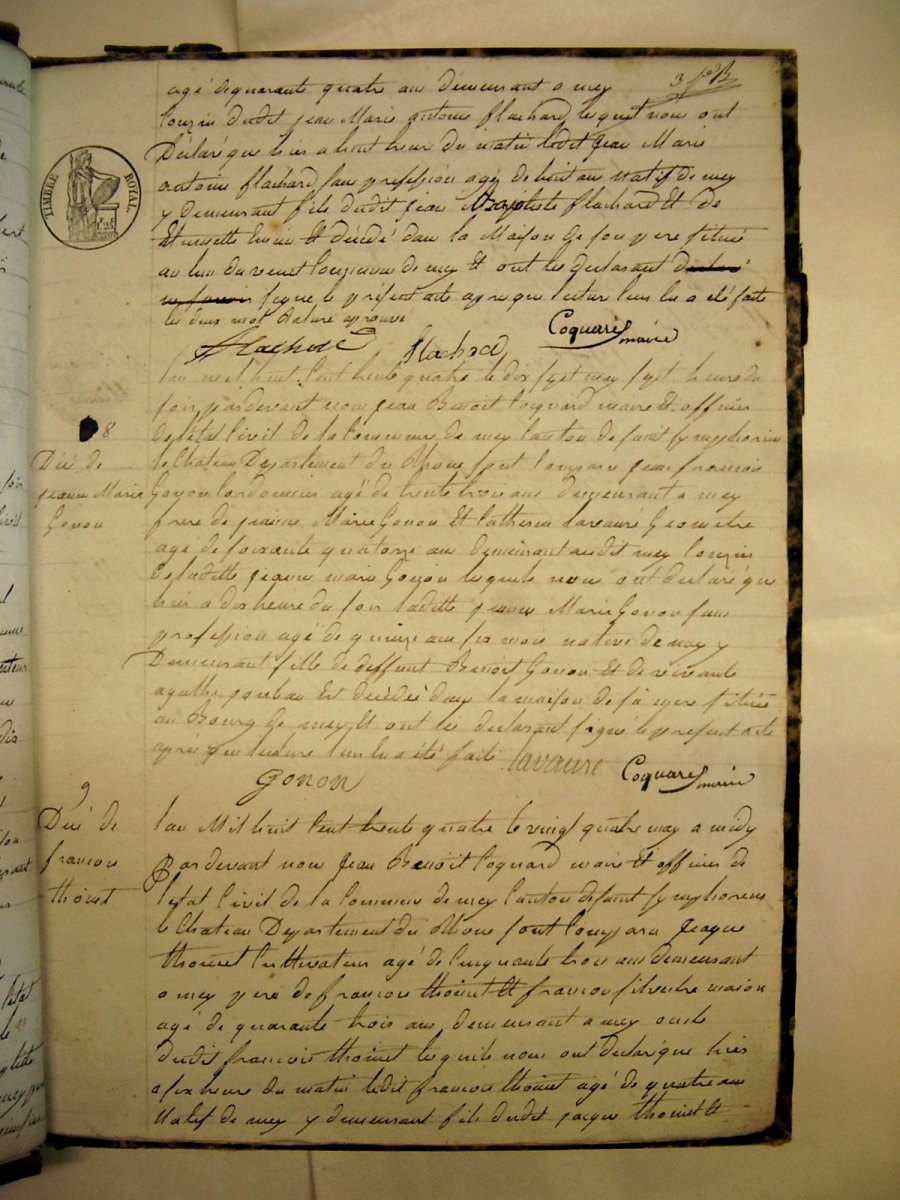 3
agé de quarante quatre ans demeurant a mey
Cousin dudit jean Marie antoine flachard lesquels nous ont
Déclaré que hier a huit heure du matin ledit jean Marie
antoine flachard sans profession agé de huit ans natif de mey
y demeurant fils dudit jean Baptiste flachard Et de
Et décédé dans la Maison de son pere située
au lieu du de mey Et ont les declarant
signé le présent acte apres que lecture leur lu a été faite
les deux mot rature aprouvé
TIMBRE ROYAL
flachard flachard Coquard maire
8
Déc de
jeanne Marie
Gonon
lan mil huit Cent trente quatre le dix sept may sept heure du
soir pardevant nous jean Benoit Coquard maire Et officier
de letat Civil de la Commune de mey Canton de saint symphorien
le Chateau Departement du Rhone sont Comparu jean francois
Gonon Cordonnier agé de trente trois ans demeurant a mey
frere de jeanne Marie Gonon Et Catherin lavaure Geometre
agé de soixante quatorze ans demeurant audit mey Cousin
de laditte jeanne marie Gonon lesquels nous ont declaré que
hier a dix heure du soir laditte jeanne Marie Gonon sans
profession agé de quinze ans six mois native de mey y
Demeurant fille de deffunt Benoit Gonon Et de vivante
agathe Est décédée dans la maison de sa mere située
au Bourg de mey Et ont les declarant signé le present acte
après que lecture leur lu a été faite lavaure Coquard maire
Gonon
9
Déc de
francois
thoinet
lan Mil huit Cent trente quatre le vingt quatre may a midy
Par devant nous jean Benoit Coquard maire Et officier de
letat Civil de la Commune de mey Canton de saint symphorien
le Chateau Departement du Rhone sont Comparu jacque
thoinet Cultivateur agé de Cinquante trois ans demeurant
a mey pere de francois thoinet Et francois silvestre macon
agé de quarante trois ans demeurant a mey oncle
dudit francois thoinet lesquels nous ont Declaré que hier
a six heure du matin ledit francois thoinet agé de quatre ans
Natif de mey y demeurant fils dudit jacque thoinet Et